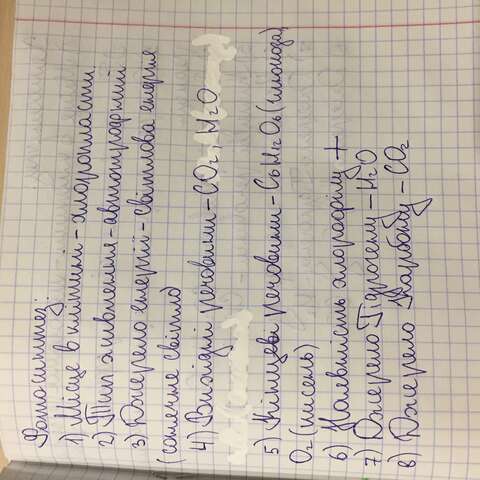 Фотосинтез:
1) Місце в клітині - хлоропласти.
2) Тип живлення - автотрофний
3) Джерело енергії - світлова енергія
(сонячне світло)
4) Вихідні речовини - CO₂, H₂O
5) Кінцеві речовини - C₆H₁₂O₆ (глюкоза)
O₂ (кисень)
6) Наявність хлорофілу +
7) Джерело Гідрогену - H₂O
8) Джерело Карбону - CO₂